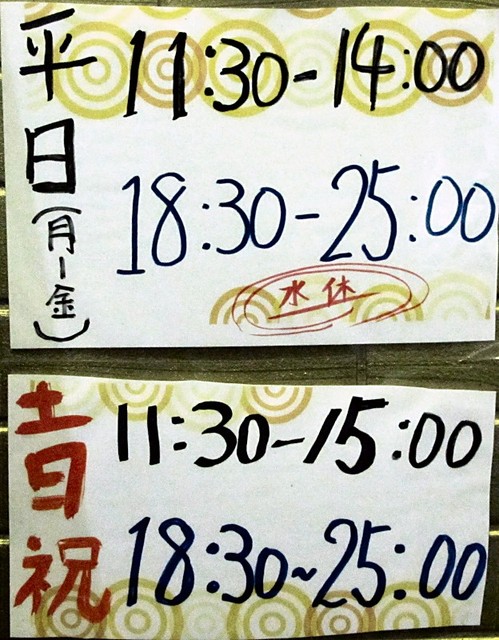 平日(月-金)
11:30-14:00
18:30-25:00
水休
土日祝
11:30-15:00
18:30~25:00